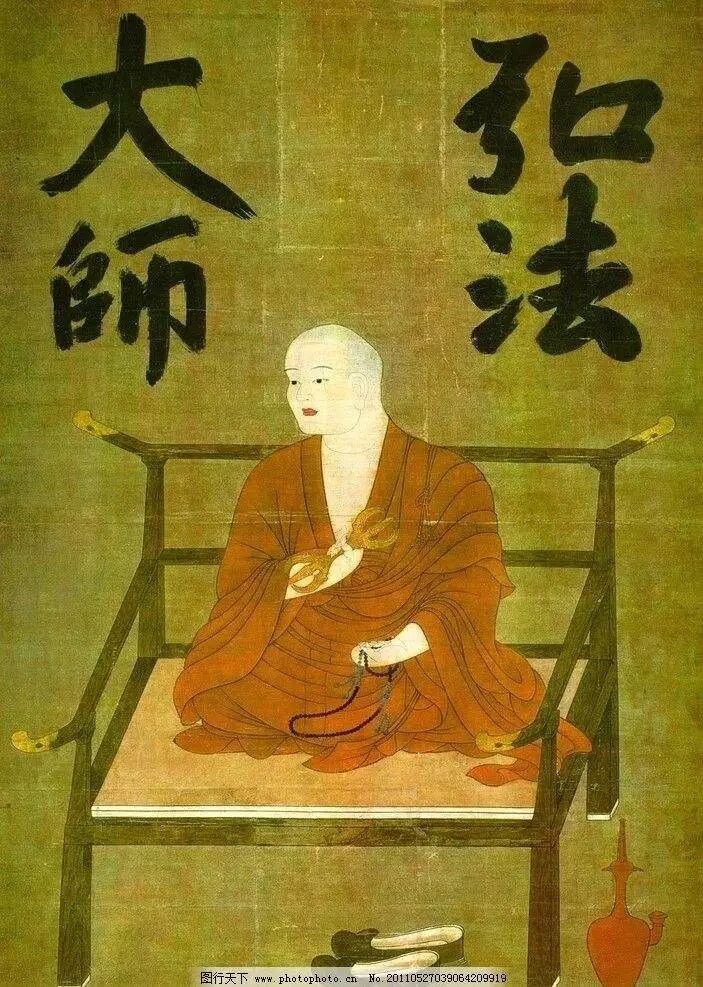 弘法
大師
图行天下 www.photophoto.cn No.20110527039064209919